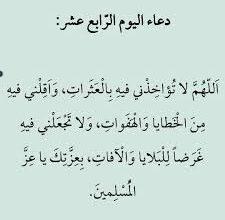 دعاء اليوم الرّابع عشر:
اَللّهُمَّ لا تُؤاخِذْني فيهِ بِالْعَثَراتِ، وَاَقِلْني فيهِ
مِنَ الْخَطايا وَالْهَفَواتِ، وَلا تَجْعَلْني فيهِ
غَرَضاً لِلْبَلايا وَالْآفاتِ، بِعِزَّتِكَ يا عِزَّ
الْمُسْلِمينَ.